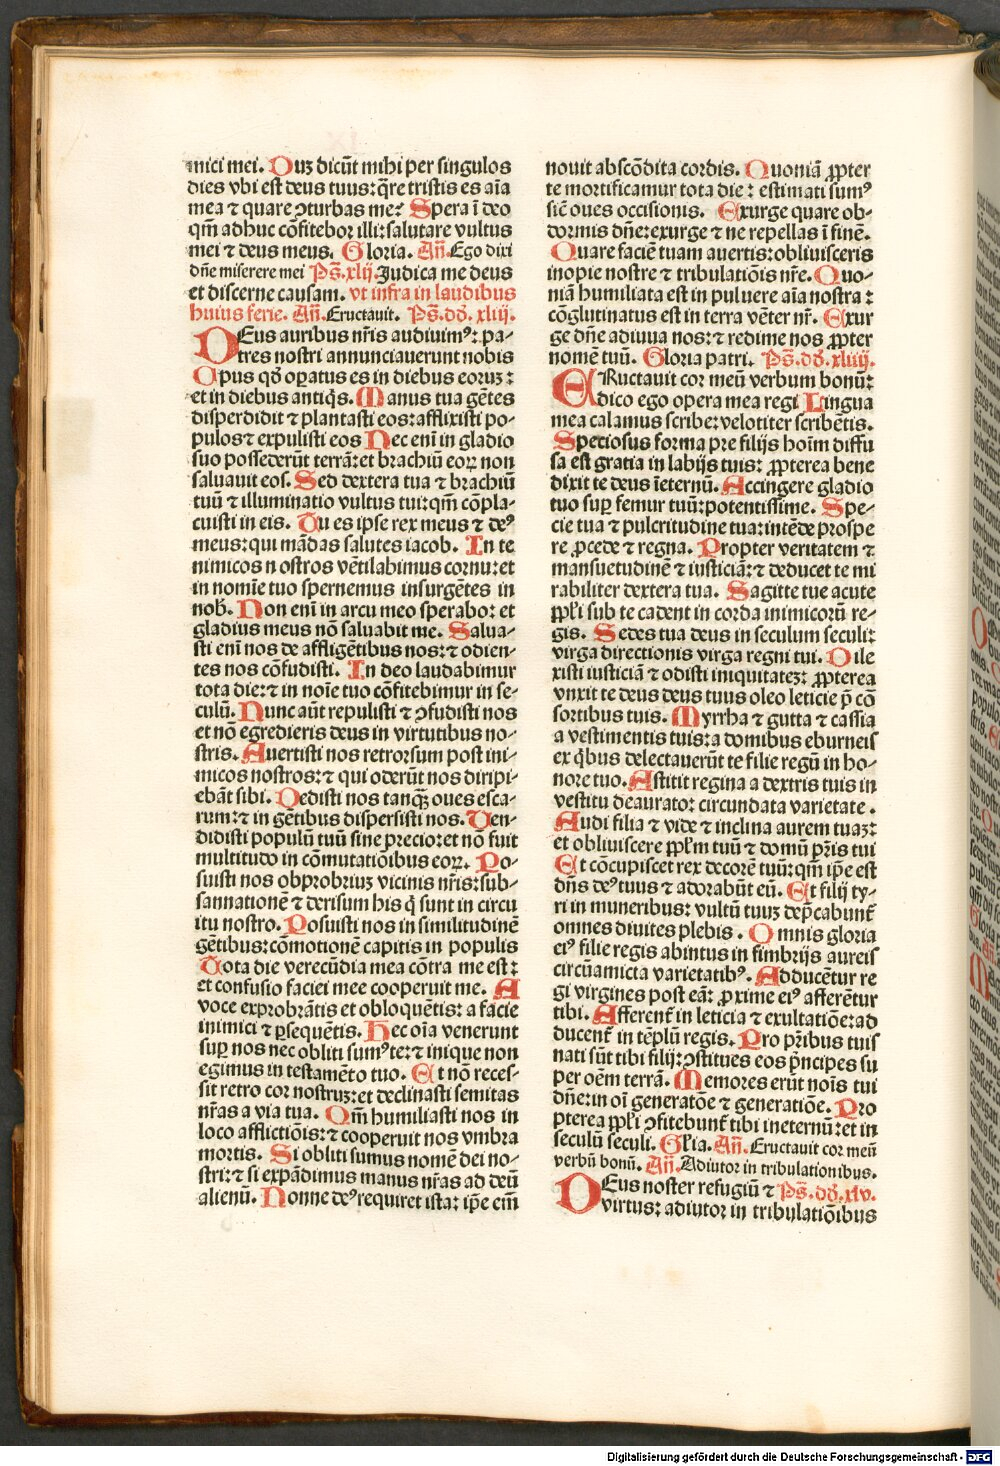 mici mei. Duꝫ dicūt mihi per singulos
dies vbi est deus tuus: q̄re tristis es aīa
mea ⁊ quare ꝯturbas me? Spera ī deo
qm̄ adhuc cōfitebor illi: salutare vultus
mei ⁊ deus meus. Gloria. Añ. Ego dixi
dñe miserere mei Ps̄. xlij. Judica me deus
et discerne causam. vt infra in laudibus
huius ferie. Añ. Eructauit. Ps̄. dđ. xliij.
DEus auribus nr̄is audiuimꝰ: pa-
tres nostri annunciauerunt nobis
Opus qđ oꝑatus es in diebus eoruꝫ:
et in diebus antiq̄s. Manus tua gētes
disperdidit ⁊ plantasti eos: afflixisti po-
pulos ⁊ expulisti eos Nec enī in gladio
suo possederūt terrā: et brachiū eoꝝ non
saluauit eos. Sed dextera tua ⁊ brachiū
tuū ⁊ illuminatio vultus tui: qm̄ cōpla-
cuisti in eis. Tu es ipse rex meus ⁊ deꝰ
meus: qui mādas salutes iacob. In te
nimicos n ostros vētilabimus cornu: et
in nomīe tuo spernemus insurgētes in
nob̄. Non enī in arcu meo sperabo: et
gladius meus nō saluabit me. Salua-
sti enī nos de affligētibus nos: ⁊ odien-
tes nos cōfudisti. In deo laudabimur
tota die: ⁊ in noīe tuo cōfitebimur in se-
culū. Nunc aūt repulisti ⁊ ꝯfudisti nos
et nō egredieris deus in virtutibus no-
stris. Auertisti nos retrorsum post ini-
micos nostros: ⁊ qui oderūt nos diripi-
ebāt sibi. Dedisti nos tanq̄ꝫ oues esca-
rum: ⁊ in gētibus dispersisti nos. Ven-
didisti populū tuū sine precio: et nō fuit
multitudo in cōmutatiōibus eoꝝ. Po-
suisti nos obprobriuꝫ vicinis nr̄is: sub-
sannationē ⁊ derisum his q̄ sunt in circu
itu nostro. Posuisti nos in similitudinē
gētibus: cōmotionē capitis in populis
Tota die verecūdia mea cōtra me est:
et confusio faciei mee cooperuit me. A
voce exprobrātis et obloquētis: a facie
inimici ⁊ ꝑsequētis. Hec oīa venerunt
suꝑ nos nec obliti sumꝰ te: ⁊ inique non
egimus in testamēto tuo. Et nō reces-
sit retro cor nostruꝫ: et declinasti semitas
nr̄as a via tua. Qm̄ humiliasti nos in
loco afflictiōis: ⁊ cooperuit nos vmbra
mortis. Si obliti sumus nomē dei no-
stri: ⁊ si expādimus manus nr̄as ad deū
alienū. Nonne deꝰ requiret ista: ip̄e em̄
nouit abscōdita cordis. Quoniā ꝓpter
te mortificamur tota die: estimati sumꝰ
sic̄ oues occisionis. Exurge quare ob-
dormis dñe: exurge ⁊ ne repellas ī finē.
Quare faciē tuam auertis: obliuisceris
inopie nostre ⁊ tribulatiōis nr̄e. Quo-
niā humiliata est in puluere aīa nostra:
cōglutinatus est in terra vēter nr̄. Exur
ge dñe adiuua nos: ⁊ redime nos ꝓpter
nomē tuū. Gloria patri. Ps̄. dđ. xliiij.
ERuctauit cor meū verbum bonū:
dico ego opera mea regi Lingua
mea calamus scribe: velotiter scribētis.
Speciosus forma pre filijs hoīm diffu
sa est gratia in labijs tuis: ꝓpterea bene
dixit te deus īeternū. Accingere gladio
tuo suꝑ femur tuū: potentissime. Spe-
cie tua ⁊ pulcritudine tua: intēde prospe
re ꝓcede ⁊ regna. Propter veritatem ⁊
mansuetudinē ⁊ iusticiā: ⁊ deducet te mi
rabiliter dextera tua. Sagitte tue acute
ppl̄i sub te cadent in corda inimicorū re-
gis. Sedes tua deus in seculum seculi:
virga directionis virga regni tui. Dile
xisti iusticiā ⁊ odisti iniquitateꝫ: ꝓpterea
vnxit te deus deus tuus oleo leticie p̄ cō
sortibus tuis. Myrrha ⁊ gutta ⁊ cassia
a vestimentis tuis: a domibus eburneis
ex q̄bus delectauerūt te filie regū in ho-
nore tuo. Astitit regina a dextris tuis in
vestitu deaurato: circundata varietate.
Audi filia ⁊ vide ⁊ inclina aurem tuaꝫ:
et obliuiscere ppl̄m tuū ⁊ domū pr̄is tui
Et cōcupiscet rex decorē tuū: qm̄ ip̄e est
dñs deꝰ tuus ⁊ adorabūt eū. Et filij ty-
ri in muneribus: vultū tuuꝫ dep̄cabunt̄
omnes diuites plebis. Omnis gloria
eiꝰ filie regis abintus in fimbrijs aureis
circūamicta varietatibꝰ. Adducētur re
gi virgines post eā: ꝓxime eiꝰ afferētur
tibi. Afferent̄ in leticia ⁊ exultatiōe: ad
ducent̄ in tēplū regis. Pro pr̄ibus tuis
nati sūt tibi filij: ꝯstitues eos p̄ncipes su
per oēm terrā. Memores erūt noīs tui
dñe: in oī generatōe ⁊ generatiōe. Pro
pterea ppl̄i ꝯfitebunt̄ tibi ineternū: et in
seculū seculi. Gl̄ia. Añ. Eructauit cor meū
verbū bonū. Añ. Adiutor in tribulationibus.
DEus noster refugiū ⁊ Ps̄. dđ. xlv.
virtus: adiutor in tribulatiōibus
Digitalisierung gefördert durch die Deutsche Forschungsgemeinschaft - DFG